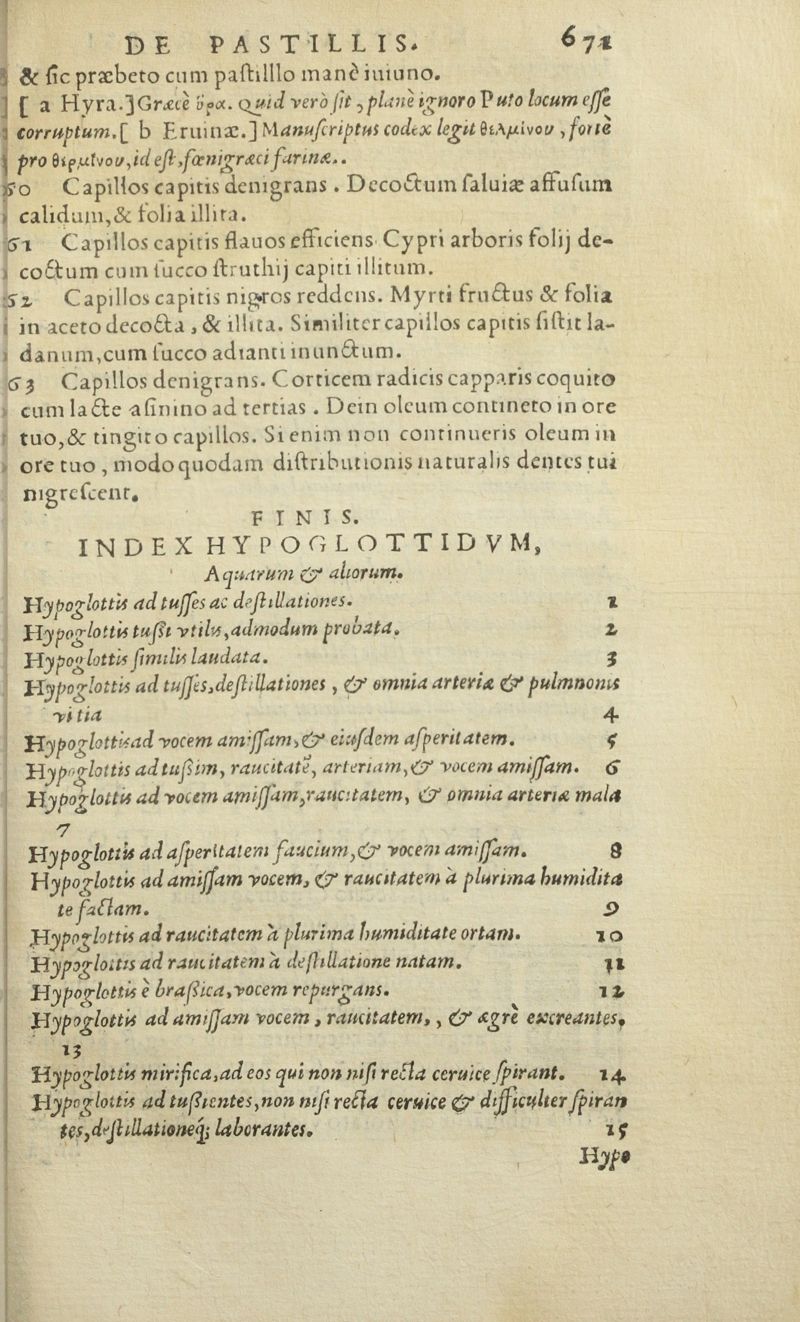 DE PASTILLIS. 671
& ſic præbeto cum paſtilllo manè iuiuno.
[ a Hyra.] Græcè ὕρα. Quid verò ſit, planè ignoro Puto locum eſſe
corruptum. [ b Eruinæ.] Manuſcriptus codex legit θελμίνου, fortè
pro θερμίνου, id eſt, fœnigræci farinæ..
50 Capillos capitis denigrans. Decoctum ſaluiæ affuſum
calidum, & folia illita.
51 Capillos capitis flauos efficiens Cypri arboris folij de-
coctum cum ſucco ſtruthij capiti illitum.
52 Capillos capitis nigros reddens. Myrti fructus & folia
in aceto decocta, & illita. Similiter capillos capitis ſiſtit la-
danum, cum ſucco adianti inunctum.
53 Capillos denigrans. Corticem radicis capparis coquito
cum lacte aſinino ad tertias. Dein oleum contineto in ore
tuo, & tingito capillos. Si enim non continueris oleum in
ore tuo, modo quodam diſtributionis naturalis dentes tui
nigreſcent.
FINIS.
INDEX HYPOGLOTTIDVM,
Aquarum & aliorum.
Hypoglottis ad tuſſes ac deſtillationes. 1
Hypoglottis tuſsi vtilis, admodum probata. 2
Hypoglottis ſimilis laudata. 3
Hypoglottis ad tuſſes, deſtillationes, & omnia arteriæ & pulmnonis
vitia 4
Hypoglottis ad vocem amiſſam, & eiuſdem aſperitatem. 5
Hypoglottis ad tuſsim, raucitatē, arteriam, & vocem amiſſam. 6
Hypoglottis ad vocem amiſſam, raucitatem, & omnia arteriæ mala
7
Hypoglottis ad aſperitatem faucium, & vocem amiſſam. 8
Hypoglottis ad amiſſam vocem, & raucitatem à plurima humidita
te factam. 9
Hypoglottis ad raucitatem à plurima humiditate ortam. 10
Hypoglottis ad raucitatem à deſtillatione natam. 11
Hypoglottis è braſsica, vocem repurgans. 12
Hypoglottis ad amiſſam vocem, raucitatem, , & ægrè excreantes,
13
Hypoglottis mirifica, ad eos qui non niſi recta ceruice ſpirant. 14
Hypoglottis ad tuſsientes, non niſi recta ceruice & difficulter ſpiran
tes, deſtillationeq; laborantes. 15
Hypo